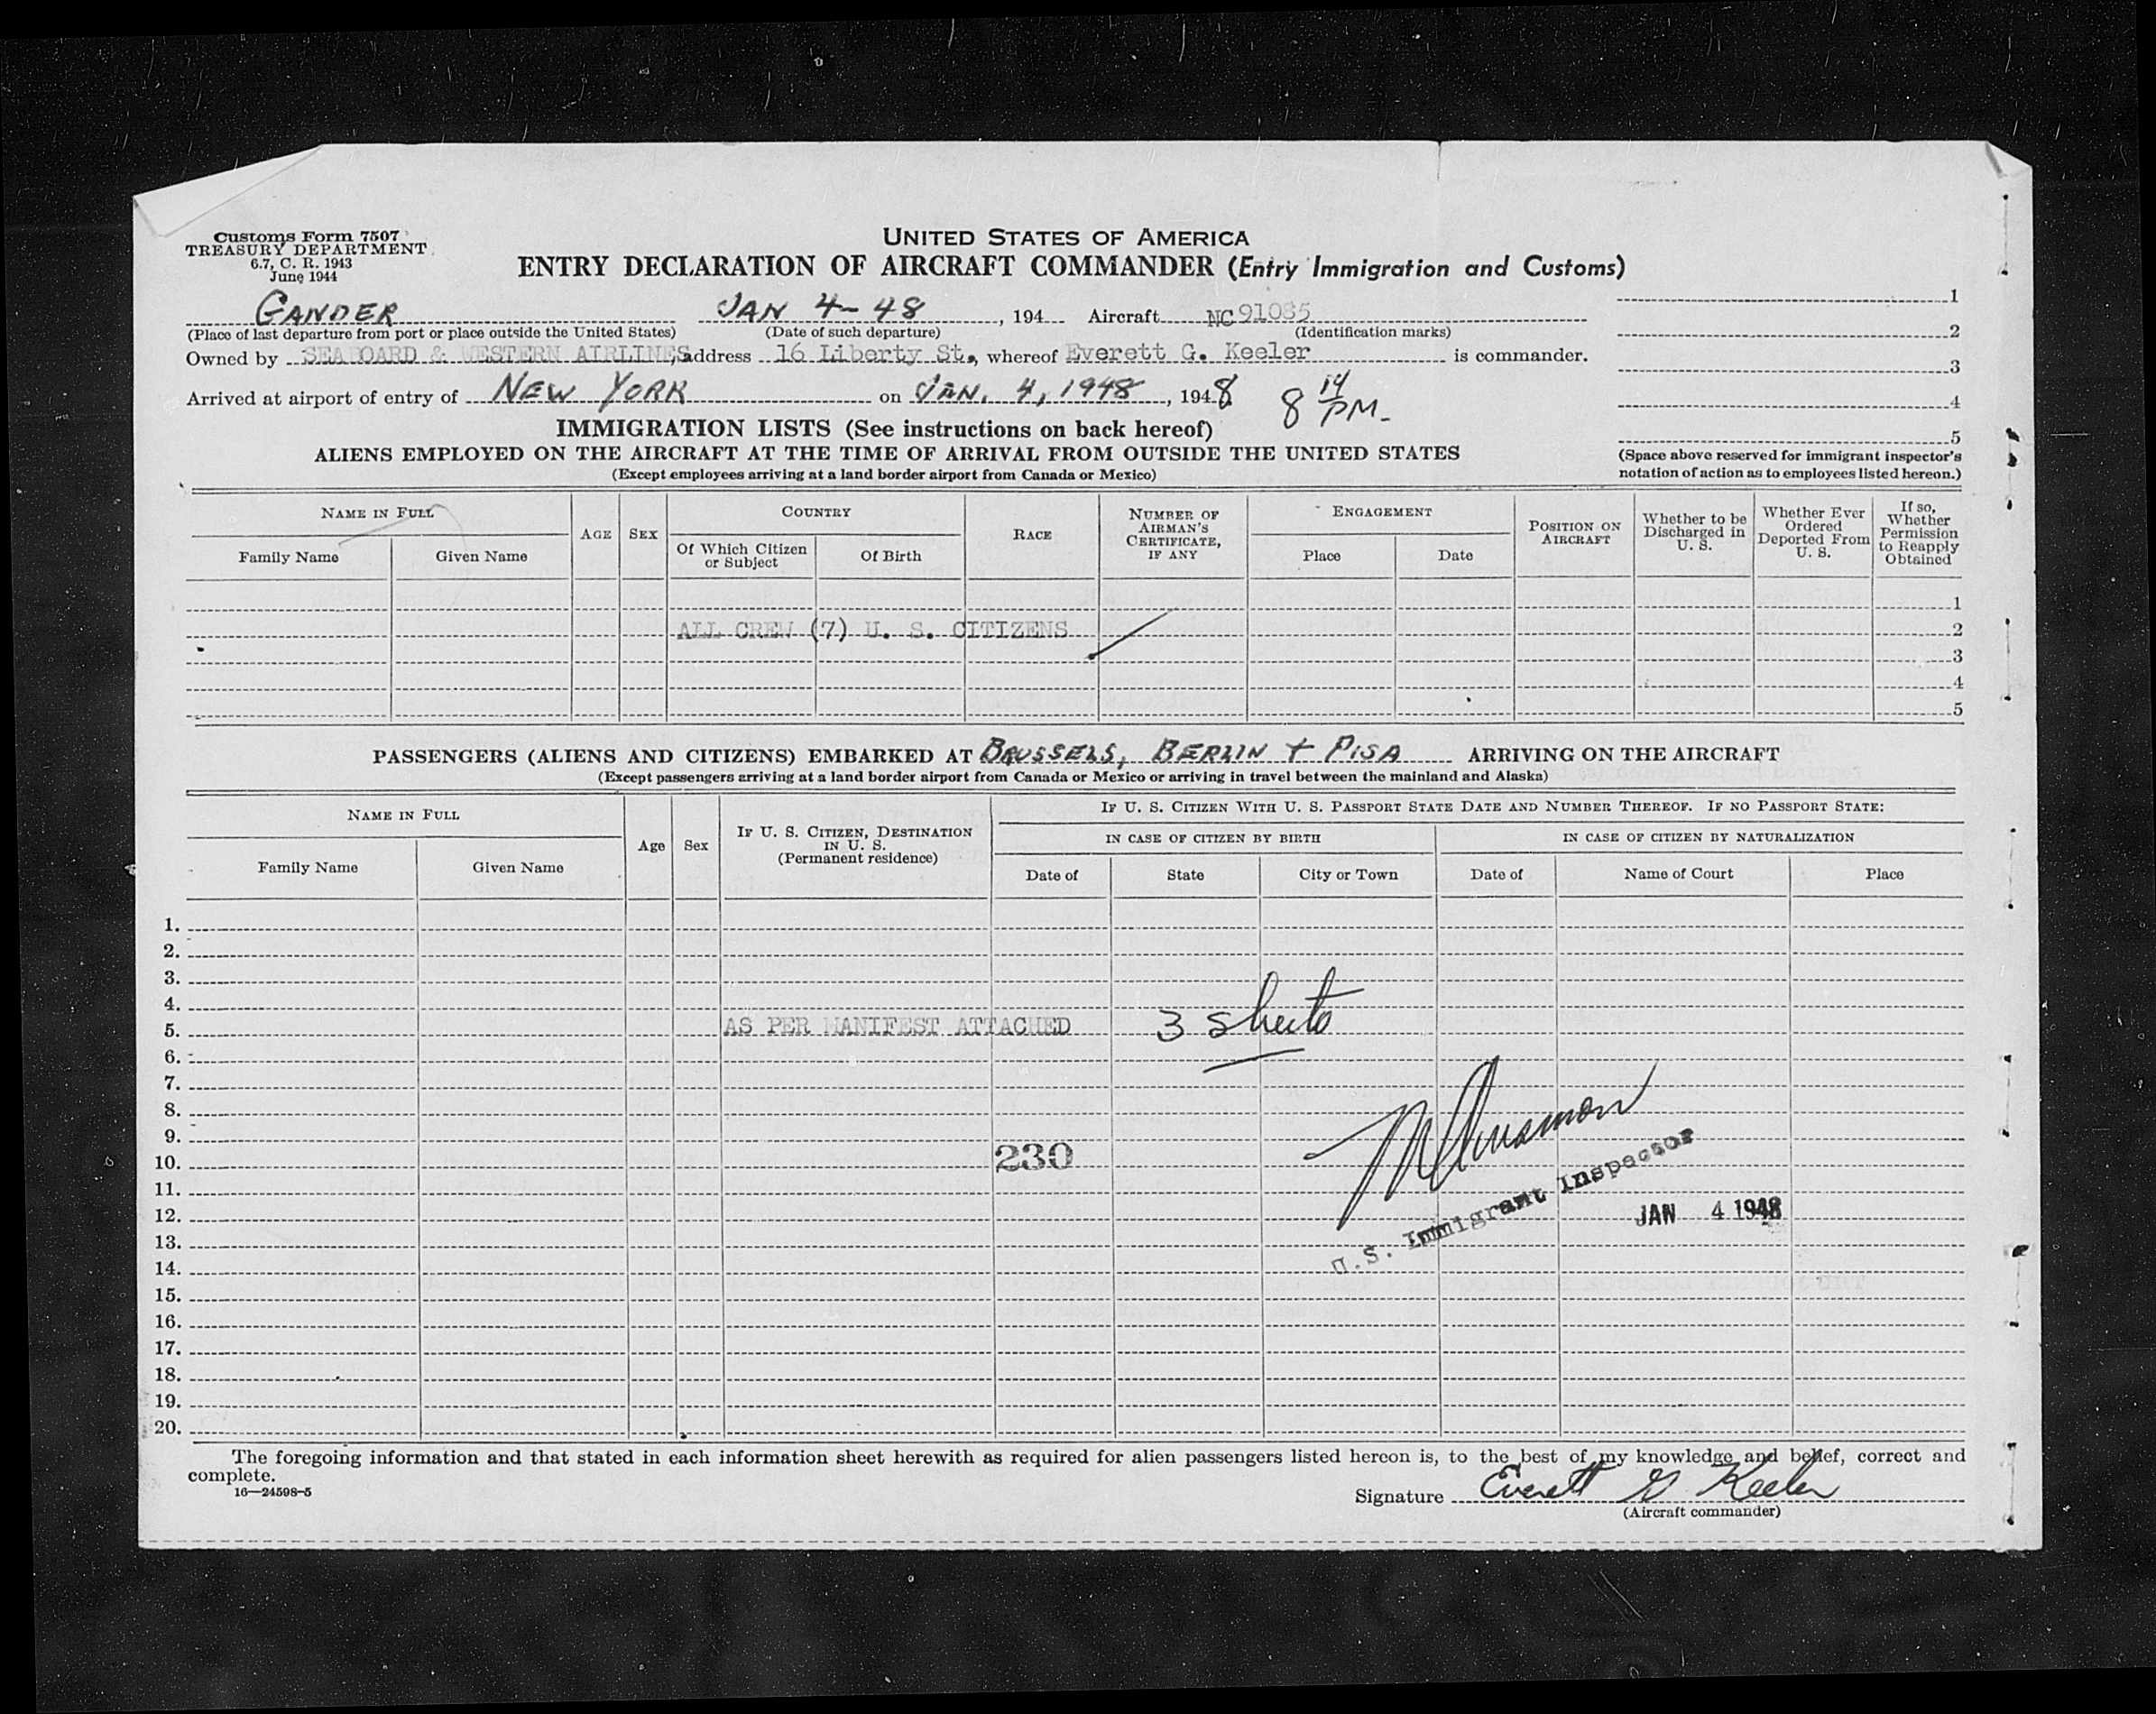 Customs Form 7507
TREASURY DEPARTMENT
6.7, C. R. 1943
June 1944
UNITED STATES OF AMERICA
ENTRY DECLARATION OF AIRCRAFT COMMANDER (Entry Immigration and Customs)
GANDER JAN 4-48, 194 Aircraft NC 91085
(Place of last departure from port or place outside the United States) (Date of such departure) (Identification marks)
Owned by SEABOARD & WESTERN AIRLINES, address 16 Liberty St., whereof Everett G. Keeler is commander.
Arrived at airport of entry of NEW YORK on JAN. 4, 1948, 1948 8 14 PM.
1
2
3
4
5
(Space above reserved for immigrant inspector's
notation of action as to employees listed hereon.)
IMMIGRATION LISTS (See instructions on back hereof)
ALIENS EMPLOYED ON THE AIRCRAFT AT THE TIME OF ARRIVAL FROM OUTSIDE THE UNITED STATES
(Except employees arriving at a land border airport from Canada or Mexico)
NAME IN FULL
Family Name Given Name
AGE SEX
COUNTRY
Of Which Citizen or Subject Of Birth
RACE
NUMBER OF AIRMAN'S CERTIFICATE, IF ANY
ENGAGEMENT
Place Date
POSITION ON AIRCRAFT
Whether to be Discharged in U. S.
Whether Ever Ordered Deported From U. S.
If so, Whether Permission to Reapply Obtained
1
ALL CREW (7) U. S. CITIZENS 2
3
4
5
PASSENGERS (ALIENS AND CITIZENS) EMBARKED AT BRUSSELS, BERLIN + PISA ARRIVING ON THE AIRCRAFT
(Except passengers arriving at a land border airport from Canada or Mexico or arriving in travel between the mainland and Alaska)
NAME IN FULL
Family Name Given Name
Age Sex
IF U. S. CITIZEN, DESTINATION IN U. S. (Permanent residence)
IF U. S. CITIZEN WITH U. S. PASSPORT STATE DATE AND NUMBER THEREOF. IF NO PASSPORT STATE:
IN CASE OF CITIZEN BY BIRTH IN CASE OF CITIZEN BY NATURALIZATION
Date of State City or Town Date of Name of Court Place
1.
2.
3.
4.
5. AS PER MANIFEST ATTACHED 3 sheets
6.
7.
8.
9.
10. 230
11.
U.S. Immigrant Inspector
12. JAN 4 1948
13.
14.
15.
16.
17.
18.
19.
20.
The foregoing information and that stated in each information sheet herewith as required for alien passengers listed hereon is, to the best of my knowledge and belief, correct and
complete.
16—24598-5
Signature Everett G Keeler
(Aircraft commander)